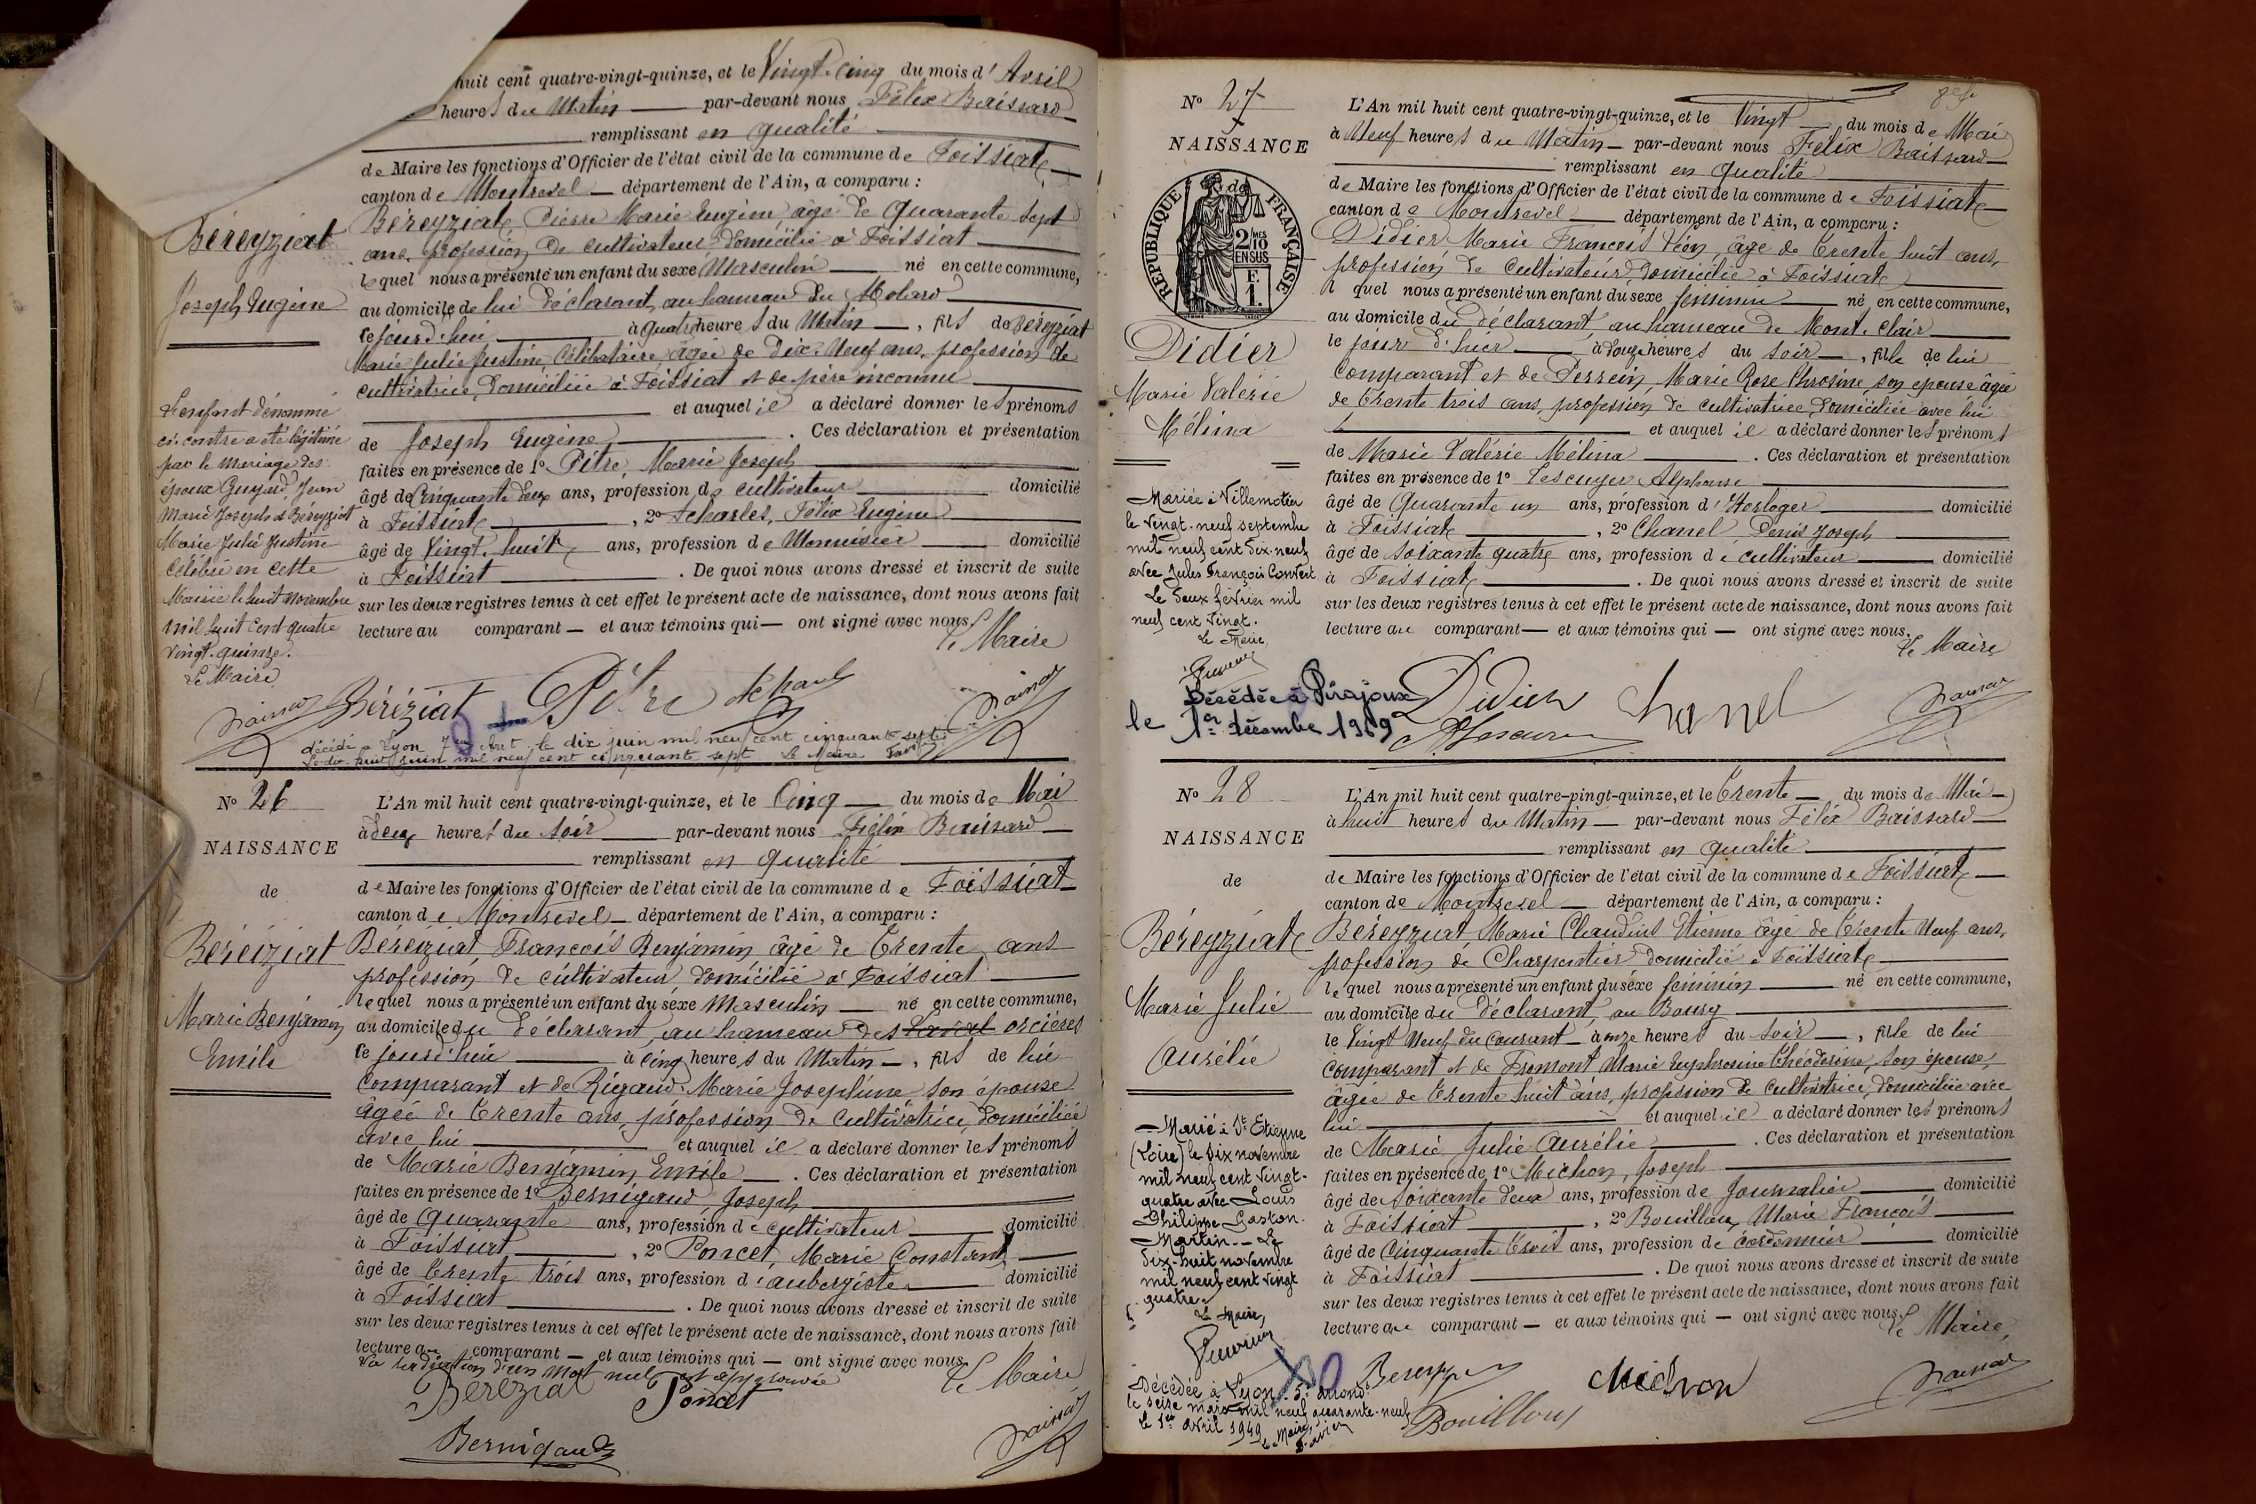 huit cent quatre-vingt-quinze, et le Vingt-Cinq du mois d'Avril
heures du Matin par-devant nous Félix Baissard
remplissant en qualité
de Maire les fonctions d'Officier de l'état civil de la commune de Foissiat
canton de Montrevel département de l'Ain, a comparu :
Béreyziat
Béreyziat, Pierre Marie Eugène, âgé de Quarante Sept
ans, profession de cultivateur domicilié à Foissiat
lequel nous a présenté un enfant du sexe Masculin né en cette commune,
Joseph Eugène
au domicile de lui déclarant, au hameau du Molard
ce jourd'hui à quatre heures du Matin, fils de Béreyziat
Marie Julie Justine, Célibataire, âgée de Dix-Neuf ans, profession de
cultivatrice, domiciliée à Foissiat et de père inconnu
et auquel il a déclaré donner les prénoms
de Joseph Eugène. Ces déclaration et présentation
faites en présence de 1º Pitre, Marie Joseph
âgé de Cinquante deux ans, profession de cultivateur domicilié
à Foissiat, 2º Félix Eugène
âgé de Vingt-huit ans, profession de Menuisier domicilié
à Foissiat. De quoi nous avons dressé et inscrit de suite
sur les deux registres tenus à cet effet le présent acte de naissance, dont nous avons fait
lecture au comparant et aux témoins qui ont signé avec nous.
Le Maire
L'enfant dénommé
ci-contre a été légitimé
par le mariage des
époux Guyard, Jean
Marie Joseph et Béreyziat
Marie Julie Justine
célébré en cette
Mairie le huit novembre
mil huit cent quatre
vingt-quinze.
Le Maire
Béréziat Pitre
décédé à Lyon 7em Arrt le dix juin mil neuf cent cinquante sept
Le dix huit juin mil neuf cent cinquante sept Le Maire
Nº 26
NAISSANCE
de
Béréiziat
Marie Benjamin
Emile
L'An mil huit cent quatre-vingt-quinze, et le Cinq du mois de Mai
à deux heures du soir par-devant nous Félix Baissard
remplissant en qualité
de Maire les fonctions d'Officier de l'état civil de la commune de Foissiat
canton de Montrevel département de l'Ain, a comparu :
Béréiziat, François Benjamin, âgé de Trente ans
profession de cultivateur domicilié à Foissiat
lequel nous a présenté un enfant du sexe Masculin né en cette commune,
au domicile du déclarant, au hameau des orcières
ce jourd'hui à cinq heures du Matin, fils de lui
comparant et de Rigaud, Marie Joséphine son épouse
âgée de Trente ans, profession de cultivatrice, domiciliée
avec lui et auquel il a déclaré donner les prénoms
de Marie Benjamin Emile. Ces déclaration et présentation
faites en présence de 1º Bernigaud, Joseph
âgé de Quarante ans, profession de cultivateur domicilié
à Foissiat, 2º Poncet, Marie Constant,
âgé de Trente trois ans, profession d'aubergiste domicilié
à Foissiat. De quoi nous avons dressé et inscrit de suite
sur les deux registres tenus à cet effet le présent acte de naissance, dont nous avons fait
lecture au comparant et aux témoins qui ont signé avec nous.
La radiation d'un mot nul est approuvée
Le Maire
Béréziat Poncet
Bernigaud
Nº 27
NAISSANCE
RÉPUBLIQUE FRANÇAISE
2/10
MES
EN SUS
F.
1.
Didier
Marie Valérie
Mélina
L'An mil huit cent quatre-vingt-quinze, et le Vingt du mois de Mai
à Neuf heures du Matin par-devant nous Félix Baissard
remplissant en qualité
de Maire les fonctions d'Officier de l'état civil de la commune de Foissiat
canton de Montrevel département de l'Ain, a comparu :
Didier, Marie François Léon, âgé de Trente huit ans,
profession de cultivateur, domicilié à Foissiat
quel nous a présenté un enfant du sexe féminin né en cette commune,
au domicile du déclarant au hameau de Mont-Clair
le jour d'hier à douze heures du soir, fille de lui
comparant et de Perrein, Marie Rose Chrosine, son épouse âgée
de Trente trois ans, profession de cultivatrice, domiciliée avec lui
et auquel il a déclaré donner les prénoms
de Marie Valérie Mélina. Ces déclaration et présentation
faites en présence de 1º Lescuyer Alphonse
âgé de Quarante un ans, profession d'Horloger domicilié
à Foissiat, 2º Chanel Denis Joseph
âgé de soixante quatre ans, profession de cultivateur domicilié
à Foissiat. De quoi nous avons dressé et inscrit de suite
sur les deux registres tenus à cet effet le présent acte de naissance, dont nous avons fait
lecture au comparant et aux témoins qui ont signé avec nous.
Le Maire
Mariée à Villemotier
le vingt-neuf septembre
mil neuf cent dix-neuf
avec Jules François Convert
Le deux février mil
neuf cent vingt.
Le Maire
Décédée à Pirajoux
le 1er décembre 1969
Didier Chanel
Nº 28
NAISSANCE
de
Béreyziat
Marie Julie
Aurélie
L'An mil huit cent quatre-vingt-quinze, et le Trente du mois de Mai
à huit heures du Matin par-devant nous Félix Baissard
remplissant en qualité
de Maire les fonctions d'Officier de l'état civil de la commune de Foissiat
canton de Montrevel département de l'Ain, a comparu :
Béreyziat Marie Claudius Etienne âgé de Trente Neuf ans,
profession de Charpentier domicilié à Foissiat
lequel nous a présenté un enfant du sexe féminin né en cette commune,
au domicile du déclarant, au Bourg
le Vingt Neuf du Courant à onze heures du soir, fille de lui
comparant et de Fromont Marie Euphrosine Théodorine, son épouse,
âgée de Trente huit ans, profession de cultivatrice, domiciliée avec
lui et auquel il a déclaré donner les prénoms
de Marie Julie Aurélie. Ces déclaration et présentation
faites en présence de 1º Michon, Joseph
âgé de soixante deux ans, profession de Journalier domicilié
à Foissiat, 2º Bouilloux, Marie François
âgé de Cinquante trois ans, profession de cordonnier domicilié
à Foissiat. De quoi nous avons dressé et inscrit de suite
sur les deux registres tenus à cet effet le présent acte de naissance, dont nous avons fait
lecture au comparant et aux témoins qui ont signé avec nous.
Le Maire,
Marié à St Etienne
(Loire) le dix novembre
mil neuf cent vingt-
quatre avec Louis
Philippe Gaston
Martin. Le
dix-huit novembre
mil neuf cent vingt
quatre.
Le Maire,
Décédée à Lyon 5e arrond
le seize mars mil neuf quarante-neuf
le 1er avril 1949
Le Maire,
Michon
Bouilloux